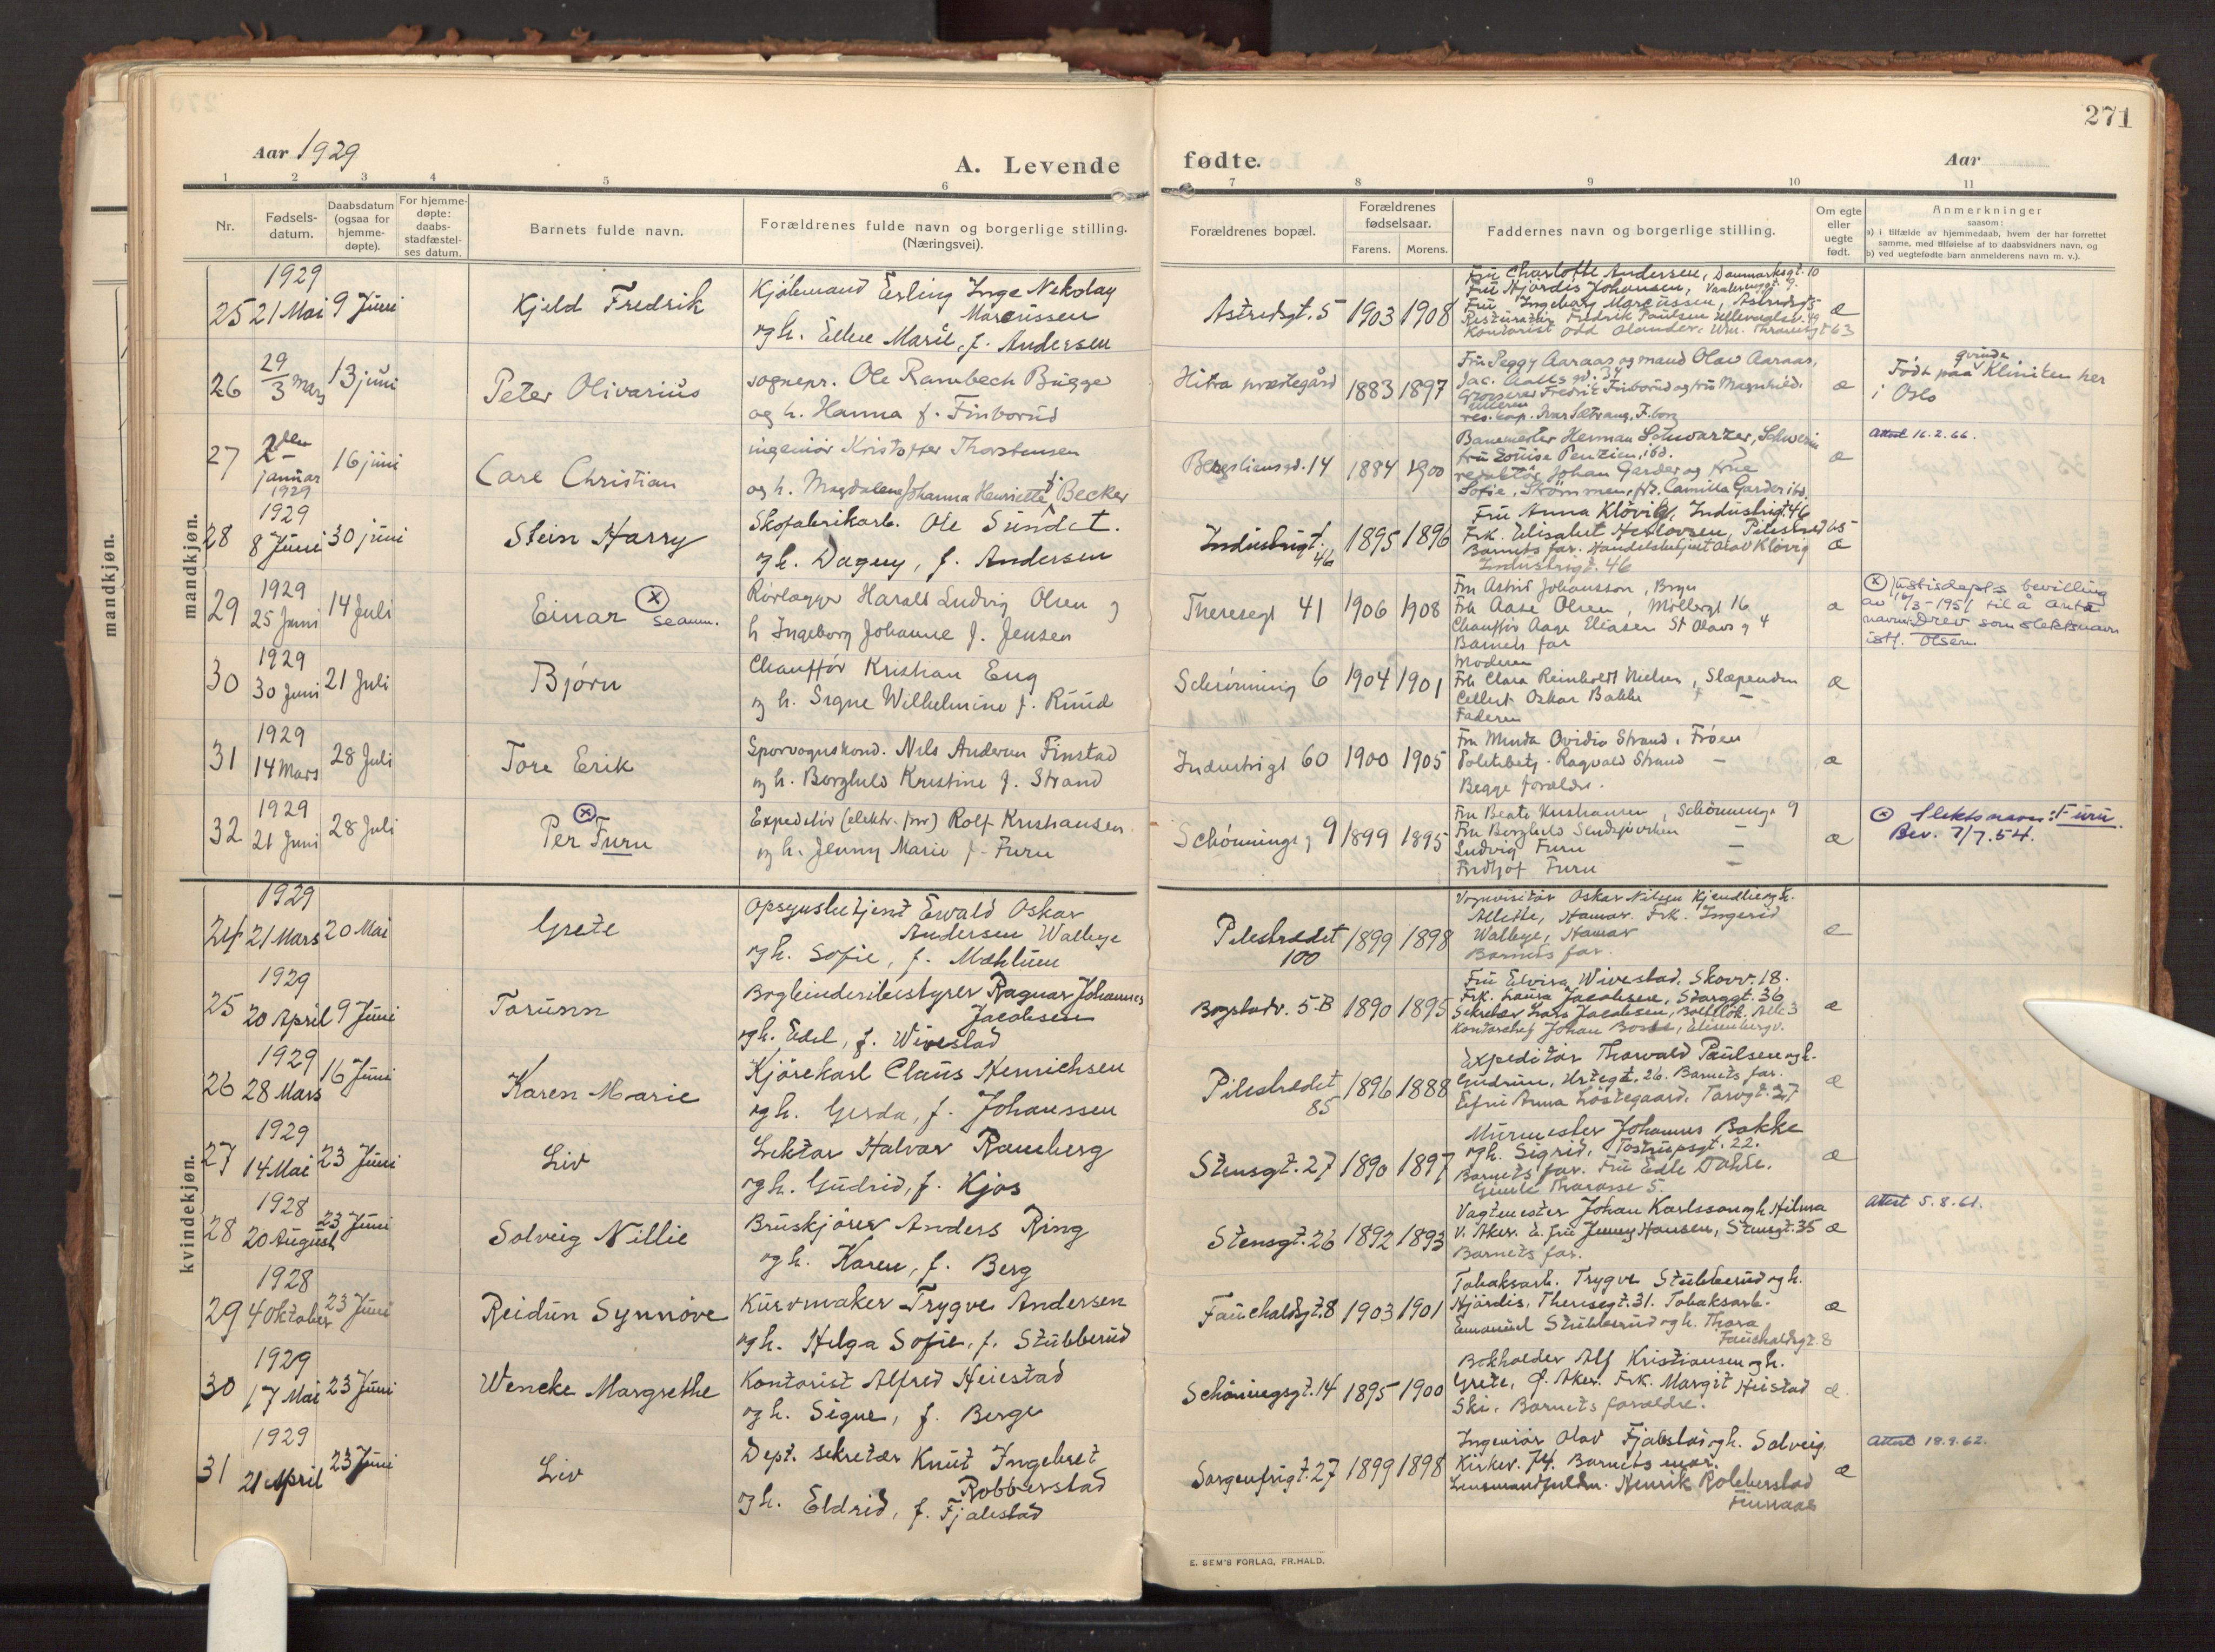 271
Aar 1929
A. Levende
fødte.
Aar
1 2 3 4 5 6 7 8 9 10 11
Nr.
Fødsels-
datum.
Daabsdatum
(ogsaa for
hjemme-
døpte).
For hjemme-
døpte:
daabs-
stadfæstel-
ses datum.
Barnets fulde navn.
Forældrenes fulde navn og borgerlige stilling.
(Næringsvei).
Forældrenes bopæl.
Forældrenes
fødselsaar.
Farens. Morens.
Faddernes navn og borgerlige stilling.
Om egte
eller
uegte
født.
Anmerkninger
saasom:
a) i tilfælde av hjemmedaab, hvem der har forrettet
samme, med tilføielse af to daabsvidners navn, og
b) ved uegtefødte barn anmelderens navn m. v.).
mandkjøn.
mandkjøn.
1929
25 21 Mai 9 Juni
Kjeld Fredrik
Kjølemand Erling Inge Nikolay
Marcussen
og h. Ellen Marie, f. Andersen
Astridsgt. 5 1903 1908
Fru Charlotte Andersen, Danmarksgt. 10
Fru Hjørdis Johansen,
Fru Ingeborg Marcussen, Astridsgt 5
Fredrik Paulsen Ullevaalsv.
Kontorist Odd Olander, Wm. Thranesgt 63
æ
26 29/3 mars 13 juni
Peter Olivarius
sognepr. Ole Rambech Bugge
og h. Hanna f. Finborud
Hitra prestegård 1883 1897
Fru Peggy Aaraas og mand Olav Aaraas,
Jac. Aallsgt. 34
Grosserer Fredrik Finborud og fru Magnhild,
Ulleren
res. kap. Ivar Sætrang, F.borg
æ
Født paa kvinde Kliniken her
i Oslo
27 2den januar 1929 16 juni
Carl Christian
ingeniør Kristoffer Thorstensen
og h. Magdalene Johanna Henriette f. Becker
Bergsliensgt. 14 1884 1900
Banemester Herman Schwarzer, Schwerin
fru Louise Penzien, ibd.
redaktør Johan Garder og frue
Sofie, Strømmen, frk. Camilla Garder ibd.
æ
Attest 16.2.66.
1929
28 8 Juni 30 juni
Stein Harry
Skofabrikarb. Ole Sundet.
og h. Dagny, f. Andersen
Industrigt. 46 1895 1896
Fru Anna Kløvig, Industrigt 46
Frk. Elisabet Pilestrædet 65
Barnets far. Handelsbetjent Olav Kløvig
Industrigt. 46
æ
1929
29 25 Juni 14 Juli
Einar ⓧ
seamn.
Rørlægger Harald Ludvig Olsen og
h Ingeborg Johanne f. Jensen
Theresegt 41 1906 1908
Fru Astrid Johansson, Bryn
Frk Aase Olsen, Møllergt 16
Chauffør Aage Eliasen St Olavs g 4
Barnets far
æ
ⓧ Justisdepts bevilling
av 14/3-1951 til å anta
navnet Drev som slektsnavn
istf. Olsen.
1929
30 30 Juni 21 Juli
Bjørn
Chauffør Kristian Eng
og h. Signe Wilhelmine f. Ruud
Schrønning 6 1904 1901
Moderen
Frk Clara Reinholdt Nielsen, Slæpenden
Cellist Oskar Bakke —
Faderen
æ
1929
31 14 Mars 28 Juli
Tore Erik
Sporvognskond. Nils Andersen Finstad
og h. Borghild Kristine f. Strand
Industrigt 60 1900 1905
Fru Minda Ovidia Strand, Frøen
Politibetj. Ragvald Strand —
Begge forældre.
æ
1929
32 21 Juni 28 Juli
ⓧ
Per Furu
Expeditør (elektr. forr) Rolf Kristiansen
og h. Jenny Marie f. Furu
Schønnings g 9 1899 1895
Fru Beate Kristiansen, Schønnings 9
Fru Borghild —
Ludvig Furu —
Fridtjof Furu —
æ
ⓧ Slektsnavn: Furu.
Bev. 7/7.54.
kvindekjøn.
1929
24 21 Mars 20 Mai
Grete
Opsynsbetjent Ewald Oskar
Andersen Walbye
og h. Sofie, f. Mæhlum
Pilestrædet 100 1899 1898
Vognvisitør Oskar Nilsen Kjendlie og h.
Allette, Hamar. Frk. Ingerid
Walbye, Hamar
Barnets far.
æ
1929
25 20 April 9 Juni
Torunn
Bogbinderibestyrer Ragnar Johannes
Jacobsen
og h. Edel, f. Wivestad
Bogstadv. 5-B 1890 1895
Fru Elvira Wivestad, Skovv. 18.
Frk. Laura Jacobsen, Storggt. 36
Sekretær Lars Jacobsen, Alle 3
Kontorchef Johan Elisenbergv.
æ
1929
26 28 Mars 16 Juni
Karen Marie
Kjørekarl Claus Henrichsen
og h. Gerda, f. Johanssen
Pilestrædet 85 1896 1888
Expeditør Thorvald Paulsen og h.
Gudrun, Urtegt. 26. Barnets far.
Anna Løstegaard, Torvgt. 27
æ
1929
27 14 Mai 23 Juni
Liv
Lektor Halvor Ramberg
og h. Gudrid, f. Kjos
Stensgt. 27 1890 1897
Murmester Johannes Bakke
og h. Sigrid, Tostrupsgt. 22.
Barnets far. Fru Edle Dahle.
Gimle Therasse 5.
æ
1928
28 20 August 23 Juni
Solveig Nillie
Bruskjører Anders Ring
og h. Karen, f. Berg
Stensgt. 26 1892 1893
Vagtmester Johan Karlsson og h. Hilma
V. Aker. E. fru Jenny Hansen, Stensgt. 35
Barnets far.
æ
Attest 5.8.61.
1928
29 4 Oktober 23 Juni
Reidun Synnøve
Kurvmaker Trygve Andersen
og h. Helga Sofie, f. Stubberud
Fauchaldsgt. 8 1903 1901
Tobaksarb. Trygve Stubberud og h.
Hjørdis, Theresegt. 31. Tobaksarb.
Emanuel Stubberud og h. Thora
Fauchaldsgt. 8
æ
1929
30 17 Mai 23 Juni
Wencke Margrethe
Kontorist Alfred Heiestad
og h. Signe, f. Berge
Schøningsgt. 14 1895 1900
Bokholder Alf Kristiansen og h.
Grete, Ø. Aker. Frk. Margit Heistad
Ski. Barnets forældre.
æ
1929
31 21 April 23 Juni
Liv
Dept. sekretær Knut Ingebret
Robberstad
og h. Eldrid, f. Fjalestad
Sorgenfrigt. 27 1899 1898
Ingeniør Olav Fjalestad og h. Solveig.
Kirkev. 74. Barnets mor.
Lensmandfuldm. Henrik Robberstad
Finnaas
æ
Attest 18.9.62.
E. SEM'S FORLAG, FR.HALD.